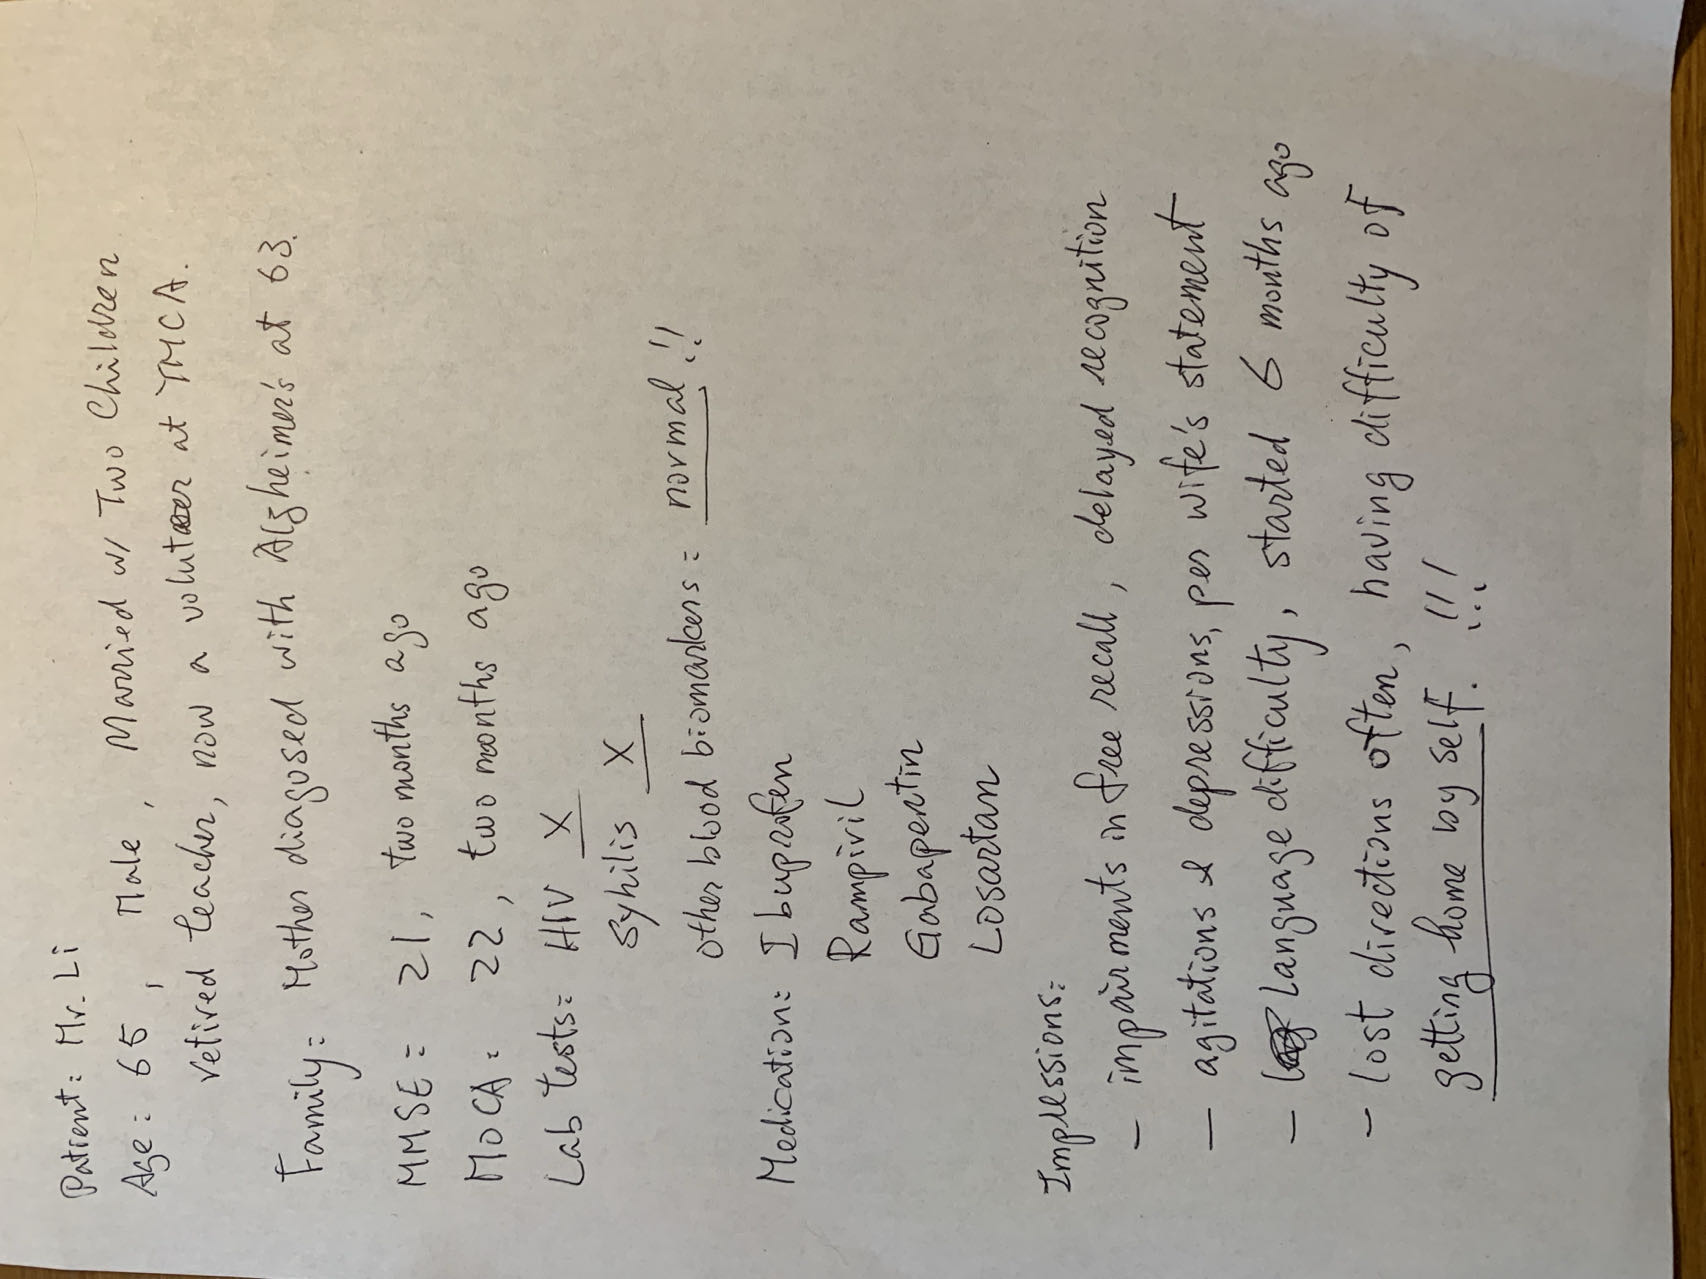 Patient: Mr. Li
Age: 65, Male, Married w/ Two Children
retired teacher, now a voluteer at YMCA.
Family: Mother diagosed with Alzheimer's at 63.
MMSE: 21, two months ago
MOCA: 22, two months ago
Lab tests: HIV X
Syhilis X
other blood biomarkers: normal!!
Medication: Ibuprofen
Rampiril
Gabapentin
Losartan
Impressions:
- impairments in free recall, delayed recognition
- agitations & depressions, per wife's statement
- Language difficulty, started 6 months ago
- lost directions often, having difficulty of
getting home by self. !!!